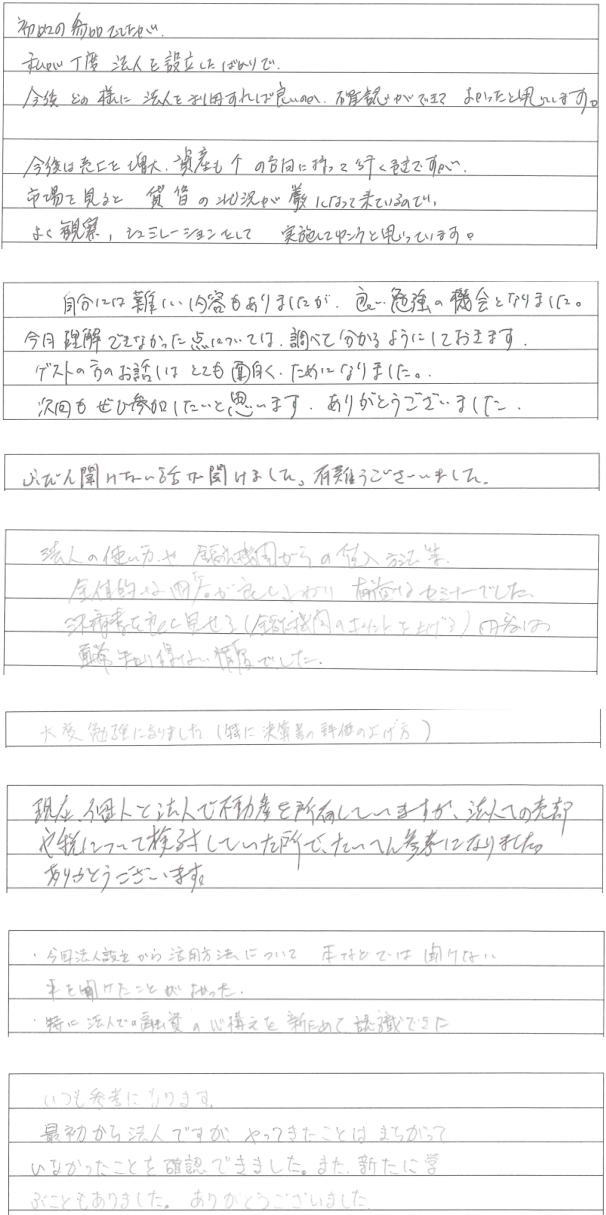 初めての参加でしたが、
私が丁度 法人を設立したばかりで、
今後 どの様に 法人を利用すれば良いのか、確認ができて よかったと思います。
今後は売上を増大、資産も の方向に持って行く予定ですが、
市場を見ると 賃貸の状況が厳になって来ているので、
よく観察，シュミレーションをして 実施してゆこうと思っています。
自分には難しい内容もありましたが、良い勉強の機会となりました。
今日理解できなかった点については、調べて分かるようにしておきます．
ゲストの方のお話しはとても面白く、ためになりました。
次回もぜひ参加したいと思います．ありがとうございました．
ふだん聞けない話が聞けました。有難うございました。
法人の使い方や 金融機関からの借入方法等、
全体的な内容が 有益なセミナーでした、
決算書を良く見せる（金融機関のポイントを上げる）内容は
通常知り得ない情報でした．
大変勉強になりました（特に決算書の評価の上げ方）
現在、個人と法人で不動産を所有していますが、法人での売却
や税について検討していた所で、たいへん参考になりました。
ありがとうございます。
・今回法人設立から活用方法について 本などでは聞けない
事を聞けたことがよかった．
・特に法人での融資の心構えを新ためて認識できた
いつも参考になります．
最初から法人ですが、やってきたことはまちがって
いなかったことを確認できました。また、新たに学
ぶこともありました。ありがとうございました